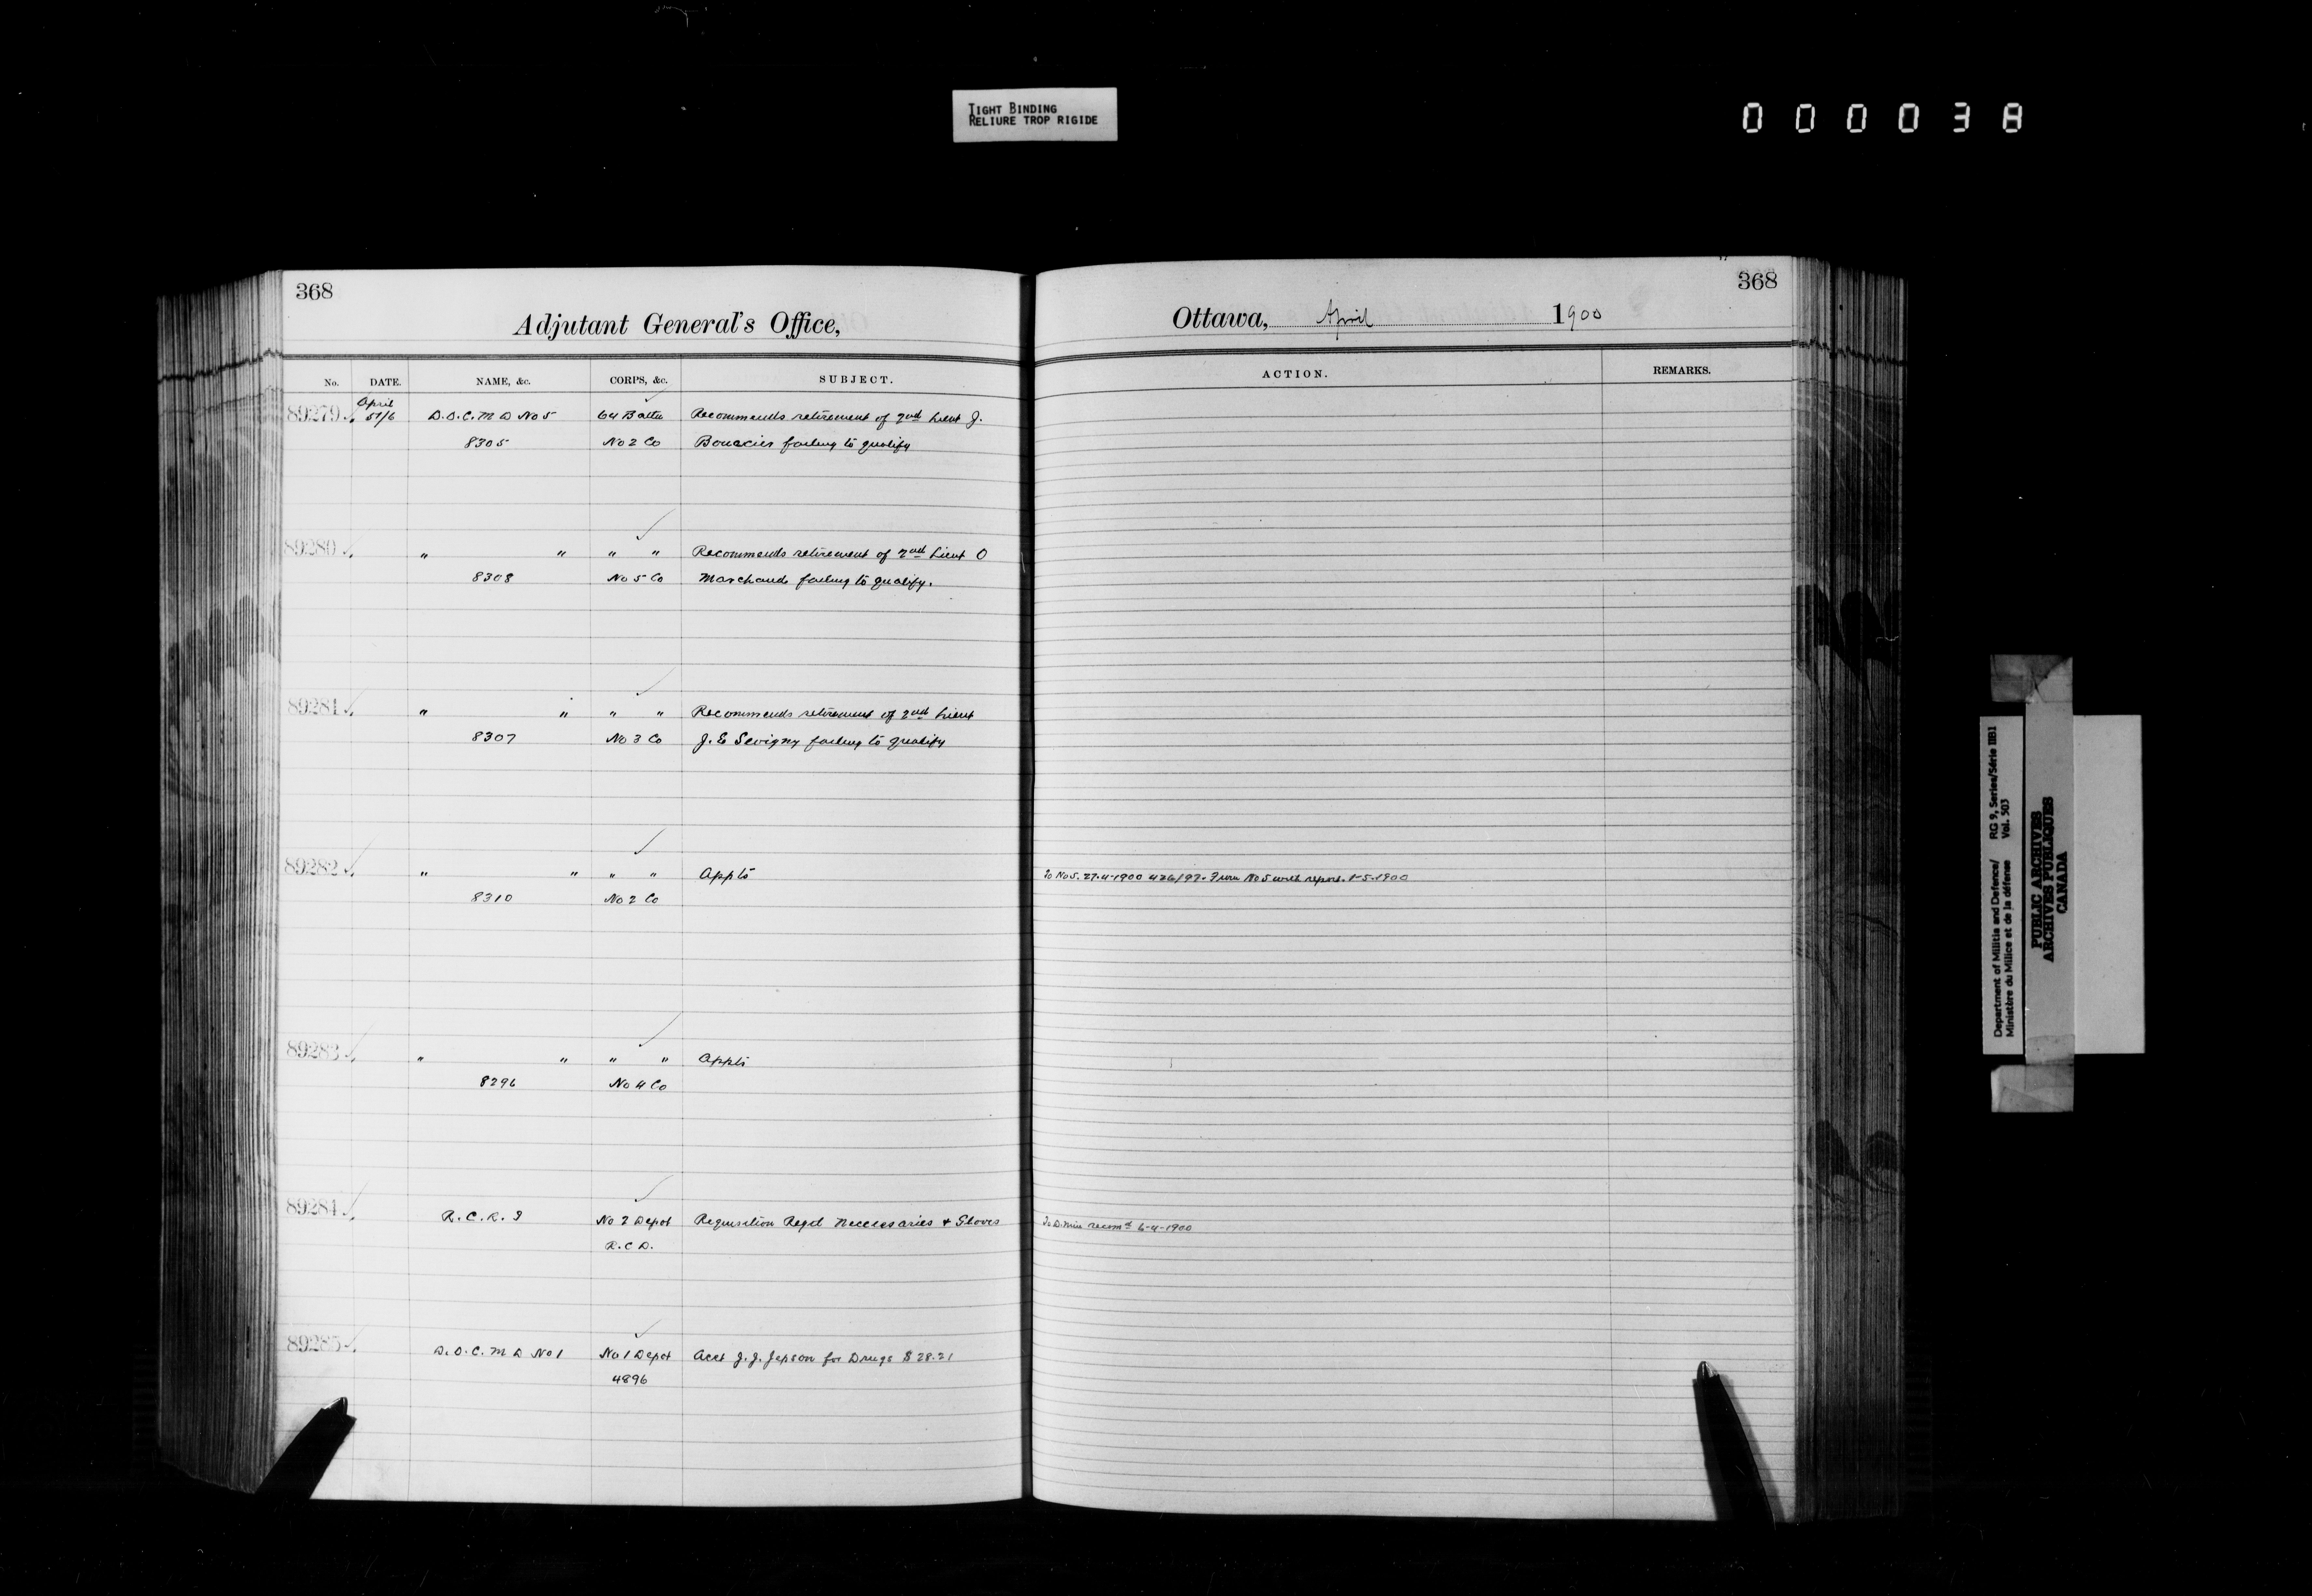 TIGHT BINDING
RELIURE TROP RIGIDE
000038
368
Adjutant General's Office,
No. DATE. NAME, &c. CORPS, &c. SUBJECT.
April
89279 5/6 D.O.C. M D No 5 64 Battn Recommends retirement of 2nd Lieut J.
8305 No 2 Co failing to qualify
89280 " " " " Recommends retirement of 2nd Lieut O
8308 No 5 Co Marchand failing to qualify.
89281 " " " " Recommends retirement of 2nd Lieut
8307 No 3 Co J. E Sevigny failing to qualify
89282 " " " " Appts
8310 No 2 Co
89283 " " " " Appts
8296 No 4 Co
89284 R.C.R.I No 2 Depot Requisition Regtl Necessaries & Gloves
R.C.D.
89285 D.O.C. M D No 1 No 1 Depot Acct J.J. Jepson for Drugs $28.21
4896
368
Ottawa, April 1900
ACTION. REMARKS.
To No 5. 27-4-1900 426/97. From No 5 with report. 1-5-1900
To D. Min recomd 6-4-1900
Department of Militia and Defence/ RG 9, Series/Série IIB1
Ministère du Milice et de la défense Vol. 503
PUBLIC ARCHIVES
ARCHIVES PUBLIQUES
CANADA